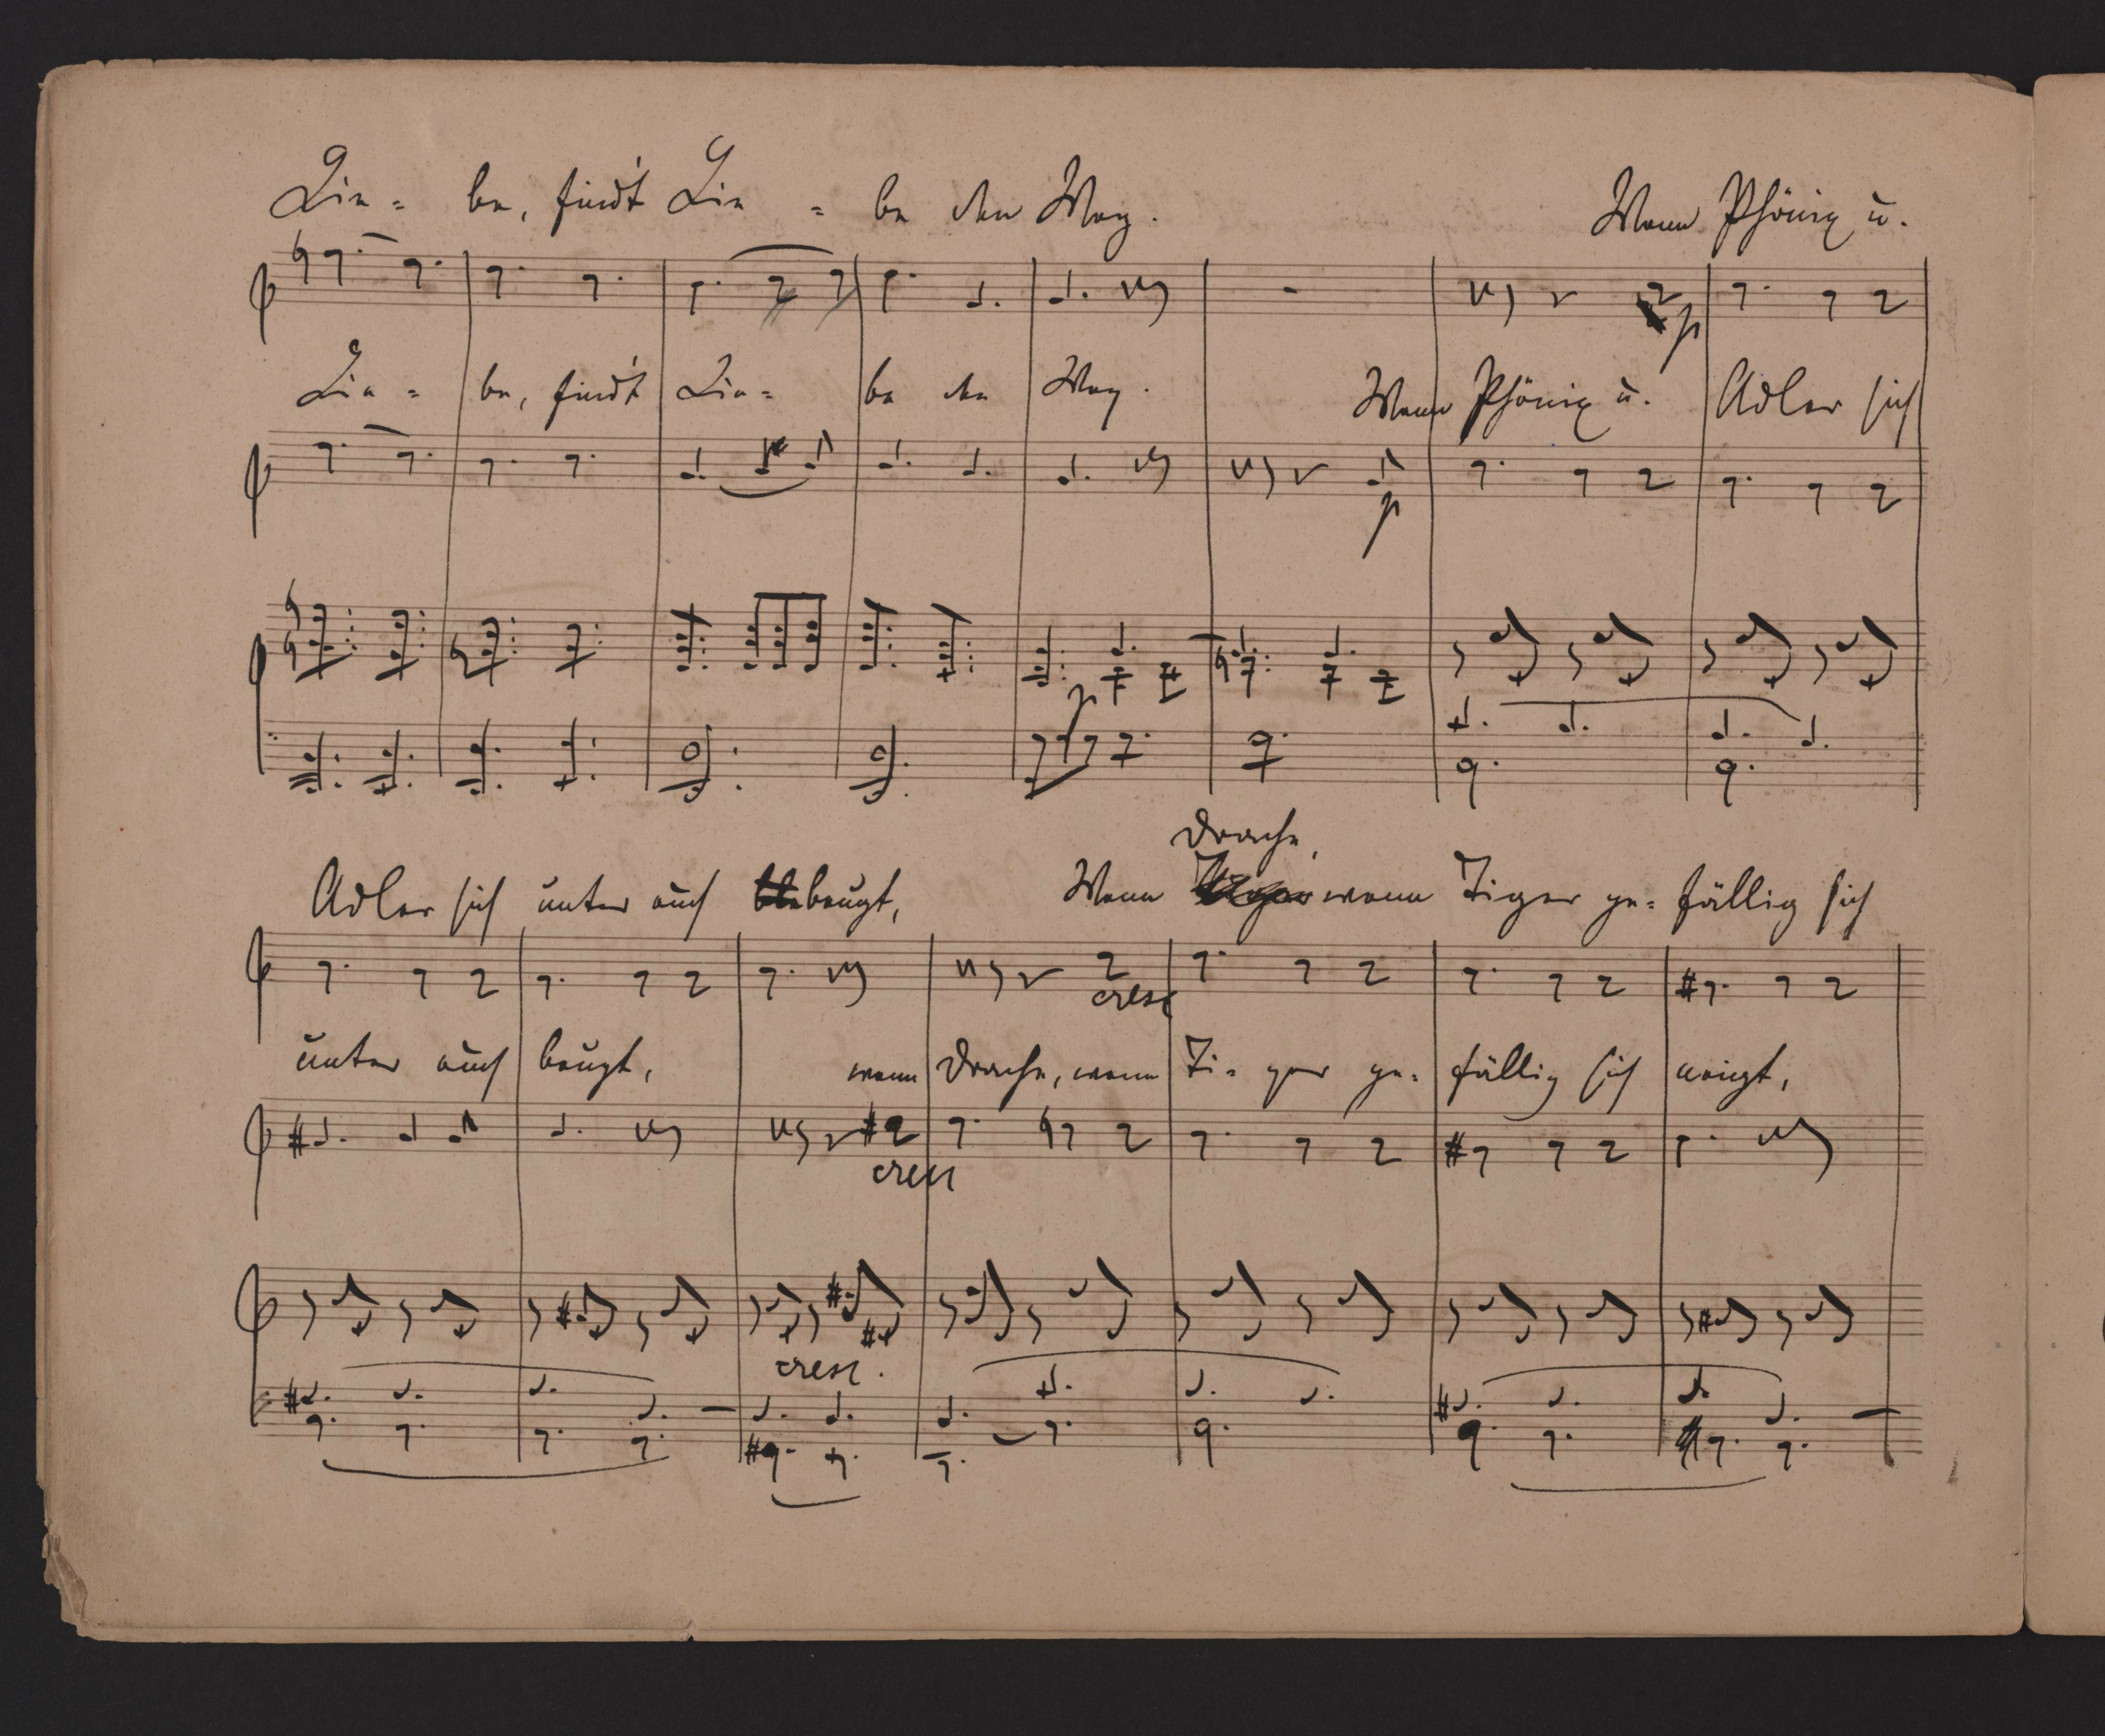 Lie = be, findt Lie = be den Weg. Wenn Phönix u.
p
Lie = be, findt Lie = be den Weg. Wenn Phönix u. Adler sich
p
p
Drache,
Adler sich unter euch beugt, Wenn wenn Tiger ge= fällig sich
cresc
unter euch beugt, wenn Drache, wenn Ti= ger ge= fällig sich neigt,
cresc
cresc.